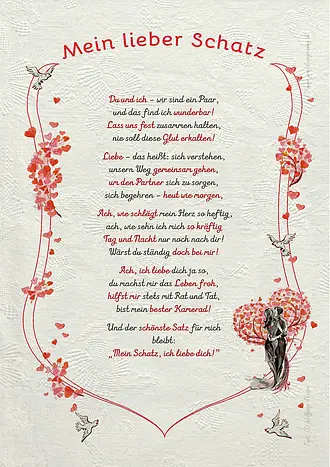 Mein lieber Schatz
Du und ich – wir sind ein Paar,
und das find ich wunderbar!
Lass uns fest zusammen halten,
nie soll diese Glut erkalten!
Liebe – das heißt: sich verstehen,
unsern Weg gemeinsam gehen,
um den Partner sich zu sorgen,
sich begehren – heut wie morgen,
Ach, wie schlägt mein Herz so heftig,
ach, wie sehn ich mich so kräftig
Tag und Nacht nur noch nach dir!
Wärst du ständig doch bei mir!
Ach, ich liebe dich ja so,
du machst mir das Leben froh,
hilfst mir stets mit Rat und Tat,
bist mein bester Kamerad!
Und der schönste Satz für mich
bleibt:
„Mein Schatz, ich liebe dich!“